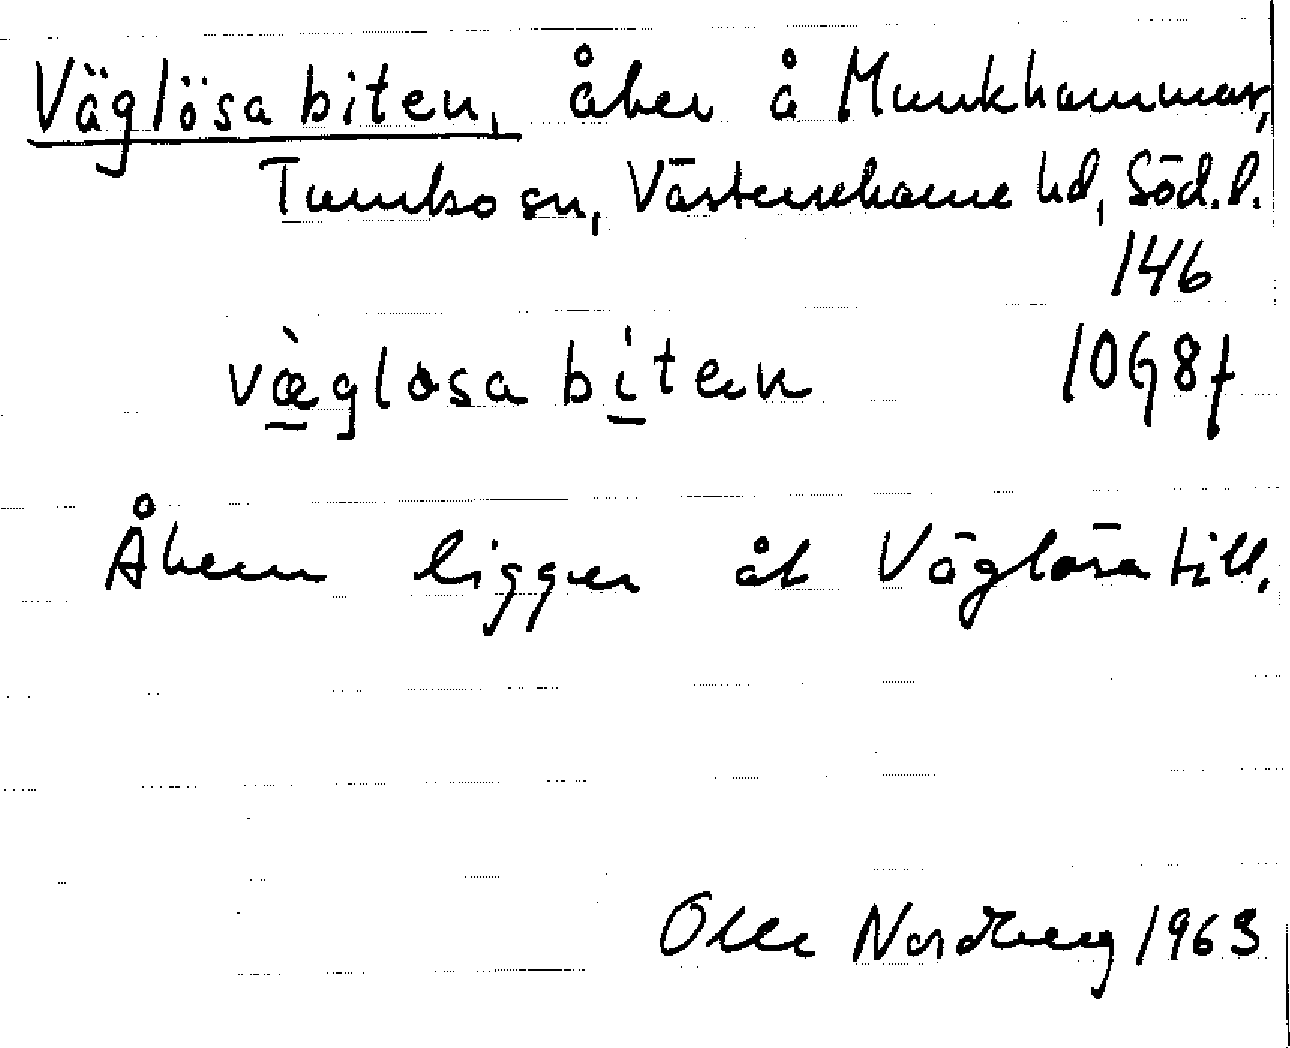 Väglösa biten, åker å Munkhammar,
Tumbo sn, Västerrekarne hd, Söd. l.
146
væ̀glosa bíten 10G8f
Åkern ligger åt Väglösa till.
Olle Nordberg 1963